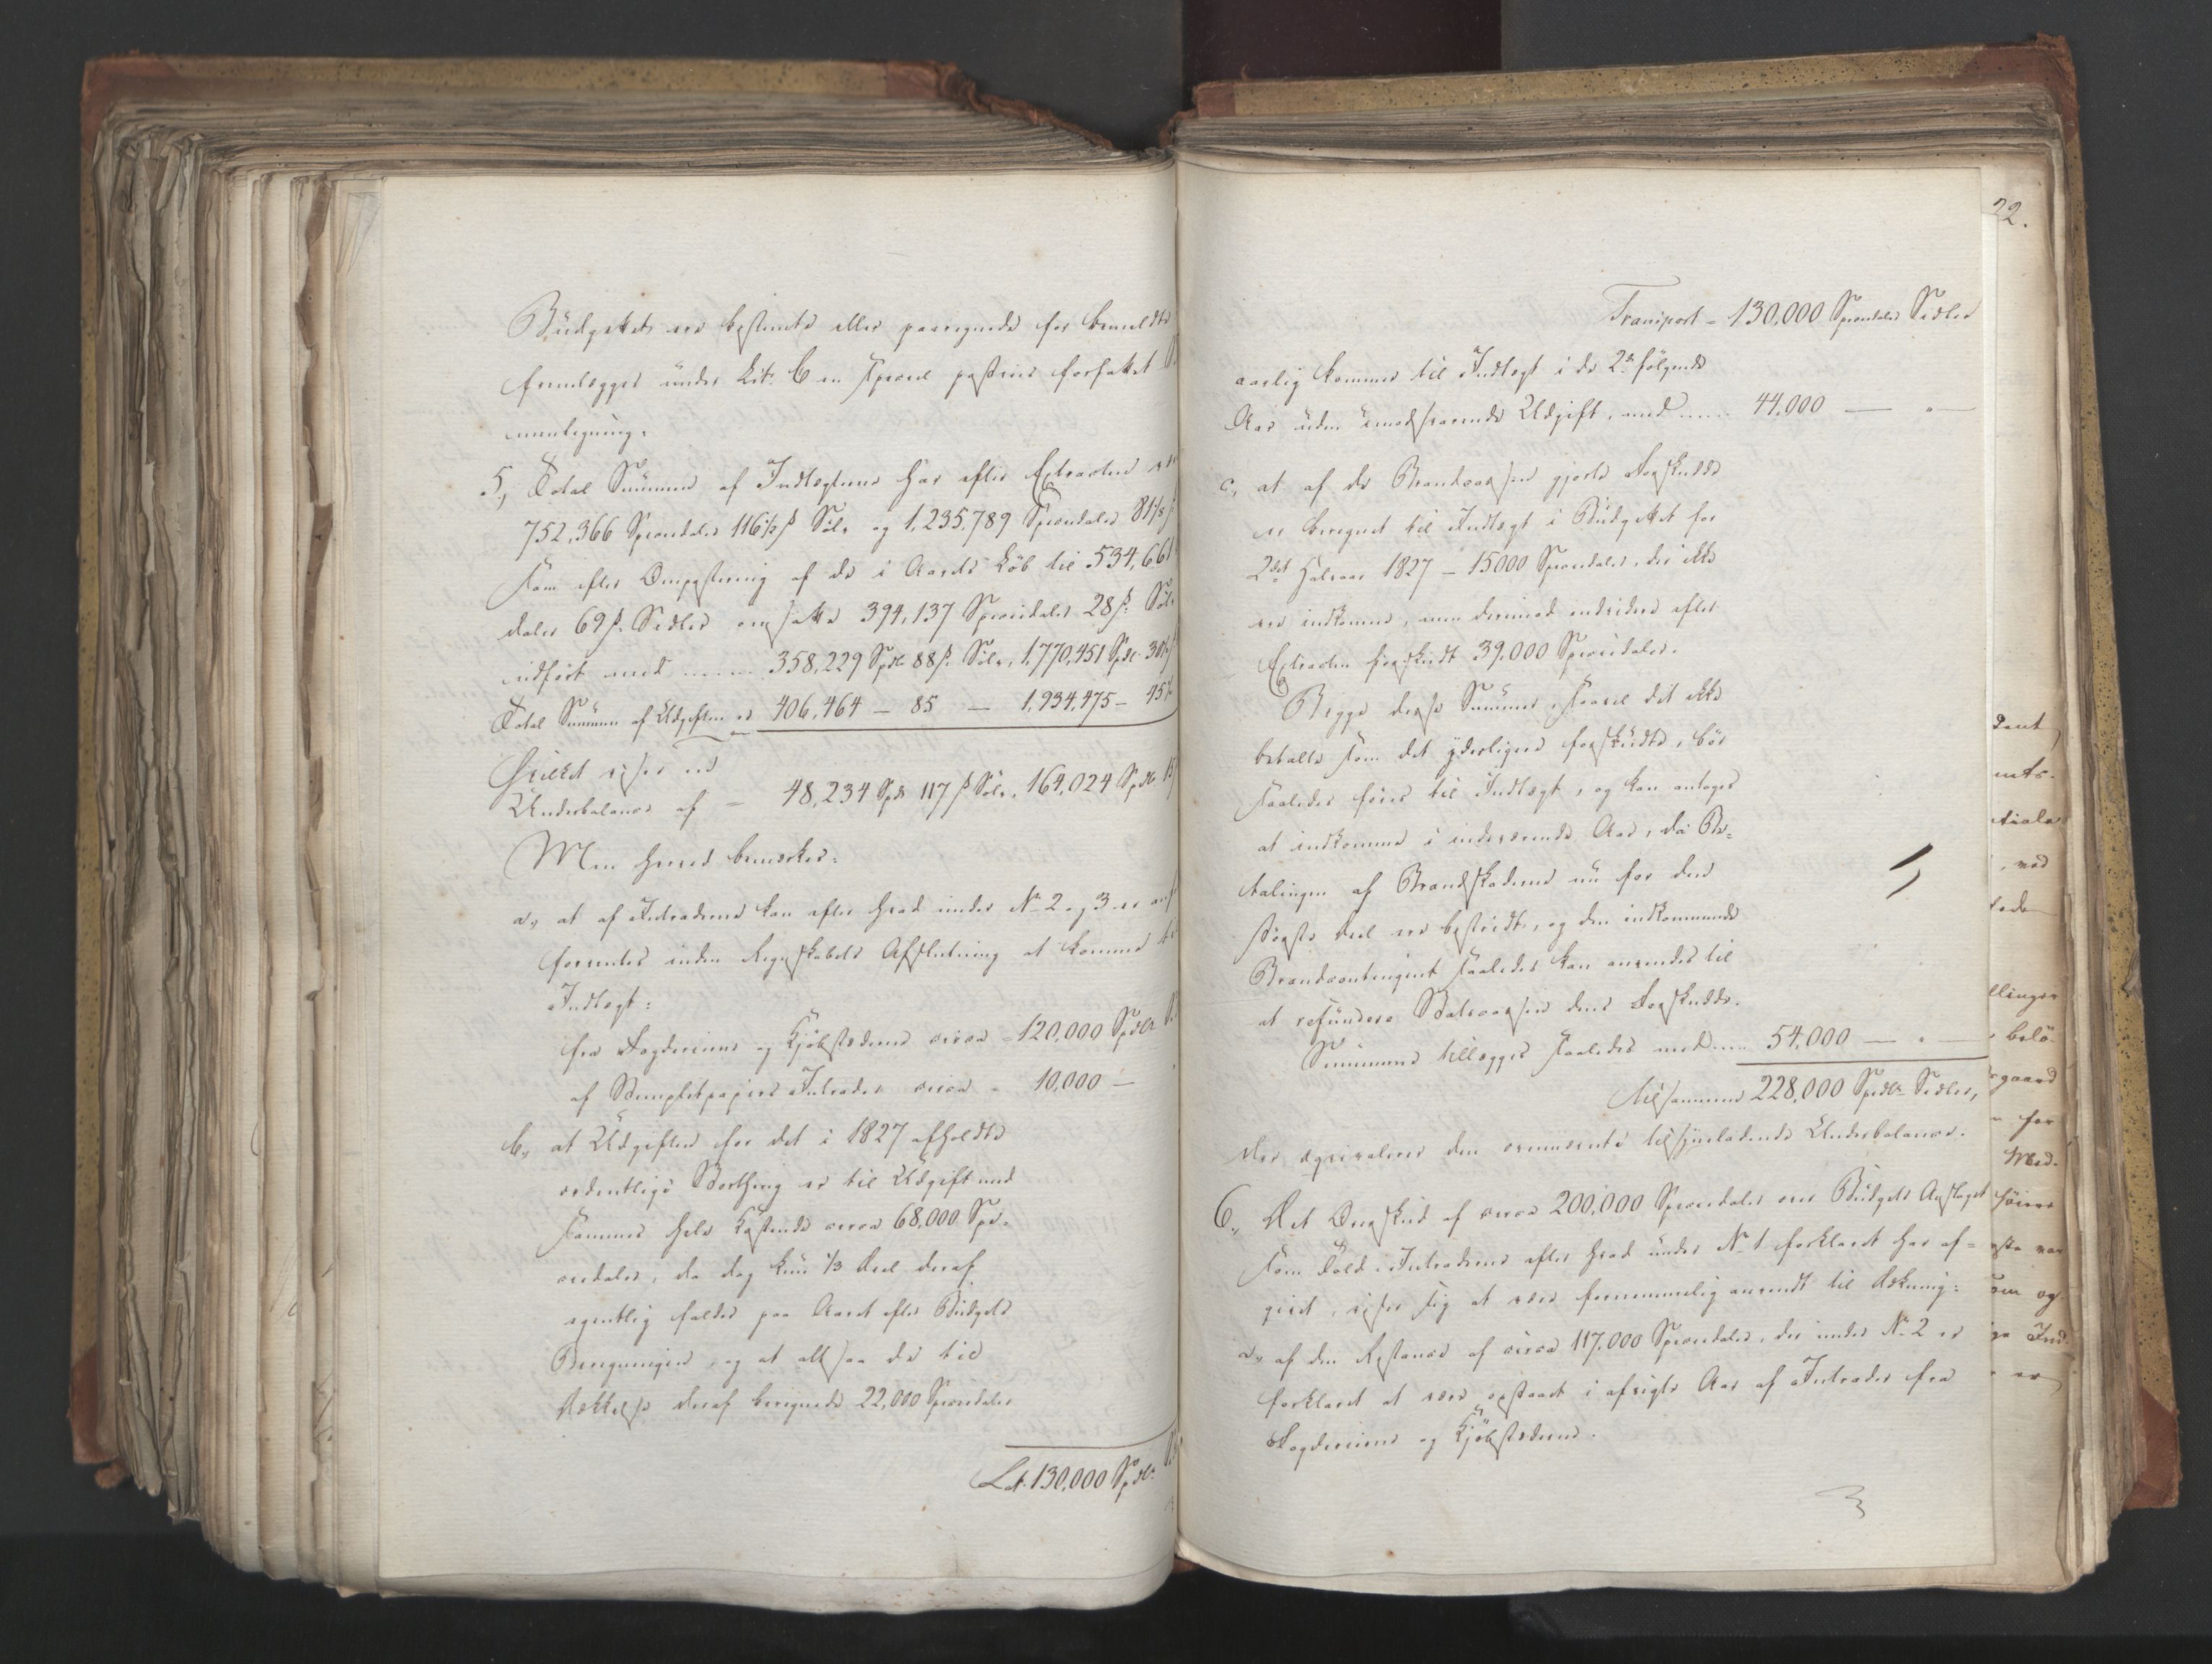 Büdgettet ere bestemte eller paaregnede for bemeldte
fremlægges ünder Litr. C en speciel passeret forfattet
menligning.
5, Total Summen af Indtægterne har efter Extracten
752,366 Speciedaler 116½ ß Sølv og 1,235,789 Speciedaler 81⅛
som efter Ompostering af de i Aarets Løb til 534,661
daler 69 ß. Sedler omsatte 394,137 Speciedaler 28 ß. Sølv
udført med ...... 358,229 Spdlr. 88 ß. Sølv, 1,770,451 Spdlr. 30
Total Summen af Udgiften er 406,464 – 85 – 1,934,475 – 45
Hvilket viser en
Underbalance af – 48,234 Spd. 117 ß Sølv, 164,024 Spdlr. 15
Men herved bemærkes:
a, at af Intraderne kan efter hvad under No 2 og 3 er anf
forventes inden Regnskabets Afslutning at komme til
Indtægt:
fra Fogderierne og Kjøbstæderne circa – 120,000 Spdlr
af Stemplet papirs Intrader circa – 10,000 –
b, at Udgiften for det i 1827 afholdte
ordentlige Storthing er til Udgift med
sammes hele Kostende circa 68,000 Spe-
ciedaler, da dog kün ⅓ Deel deraf
egentlig falder paa Aaret efter Büdgets
Beregningen, og at altsaa de til
Dækkelse deraf beregnede 22,000 Speciedaler
Lat. 130,000 Spdlr.
22.
Transport – 130,000 Speciedaler Sedler
aarlig kommer til Indtægt i de 2de følgende
Aar üden imodsvarende Udgift, med ...... 44,000 — „ —
c, at af de Brandcassen gjorte Forskudde
er beregnet til Indtægt i Büdgettet for
2det Halvaar 1827 – 15000 Speciedaler, der ikke
ere indkomne, men derimod endvidere efter
Extracten forskudt 39,000 Speciedaler.
Begge disse Summer, saavel det ikke
betalte som det yderligere forskudte, bør
saaledes føres til Indtægt, og kan antages
at indkomme i indeværende Aar, da Be-
talingen af Brandskaderne nu for den
største Deel ere bestridte, og den indkommende
Brandcontingent saaledes kan anvendes til
at refundere Statscassen dens Forskudde.
Summene tillægges saaledes med .... 54,000 — „ —
tilsammen 228,000 Spdlr. Sedler,
der æqvivalerer den ommeldte tilsyneladende Underbalance.
6, Det Overskud af circa 200,000 Speciedaler over Büdgets Anslaget
som Told-Intraderne efter hvad ünder No 1 forklaret har af-
givet, viser sig at være fornemmelig anvendt til Dækning:
a, af den Restance af circa 117,000 Speciedaler, der under No 2 er
forklaret at være opstaaet i afvigte Aar af Intrader fra
Fogderierne og Kjøbstæderne.